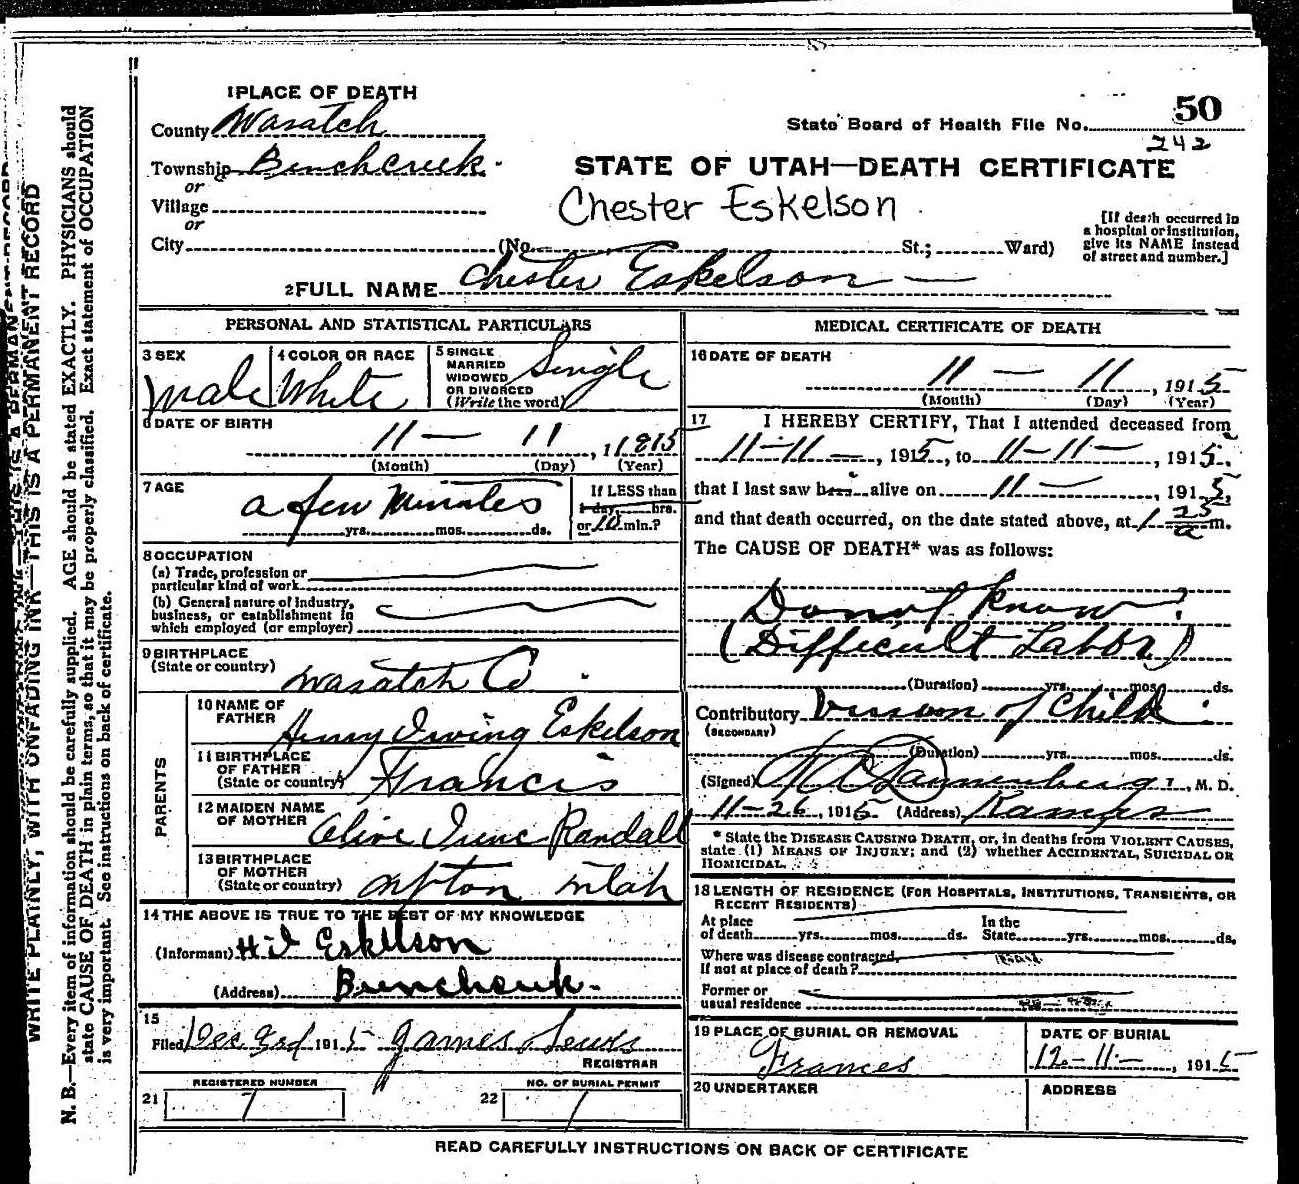 1 PLACE OF DEATH
County Wasatch
Township Benchcreek.
or
Village
or
City (No. St.; Ward)
State Board of Health File No. 50
242
STATE OF UTAH—DEATH CERTIFICATE
Chester Eskelson
[If death occurred in
a hospital or institution,
give its NAME instead
of street and number.]
2 FULL NAME Chester Eskelson
PERSONAL AND STATISTICAL PARTICULARS
3 SEX
Male
4 COLOR OR RACE
White
5 SINGLE
MARRIED
WIDOWED
OR DIVORCED
(Write the word)
Single
6 DATE OF BIRTH
11 — 11, 1915
(Month) (Day) (Year)
7 AGE
a few Minutes
yrs. mos. ds.
If LESS than
1 day, hrs.
or 10 min.?
8 OCCUPATION
(a) Trade, profession or
particular kind of work
(b) General nature of industry,
business, or establishment in
which employed (or employer)
9 BIRTHPLACE
(State or country)
Wasatch Co.
PARENTS
10 NAME OF
FATHER
Henry Irving Eskelson
11 BIRTHPLACE
OF FATHER
(State or country)
Francis
12 MAIDEN NAME
OF MOTHER
Olive Irene Randall
13 BIRTHPLACE
OF MOTHER
(State or country)
Upton Utah
14 THE ABOVE IS TRUE TO THE BEST OF MY KNOWLEDGE
(Informant) H I Eskelson
(Address) Benchcreek.
15
Filed Dec 3rd 1915 James Lewis
REGISTRAR
REGISTERED NUMBER
21 7
NO. OF BURIAL PERMIT
22 1
MEDICAL CERTIFICATE OF DEATH
16 DATE OF DEATH
11 — 11, 1915
(Month) (Day) (Year)
17 I HEREBY CERTIFY, That I attended deceased from
11-11 —, 1915, to 11-11-, 1915,
that I last saw him alive on 11 —, 1915,
and that death occurred, on the date stated above, at 1 25 a m.
The CAUSE OF DEATH* was as follows:
Don't Know?
(Difficult Labor)
(Duration) yrs. mos. ds.
Contributory Version of Child.
(SECONDARY)
(Duration) yrs. mos. ds.
(Signed) Dannenberg, M. D.
11-26, 1915 (Address) Kamas
* State the DISEASE CAUSING DEATH, or, in deaths from VIOLENT CAUSES,
state (1) MEANS OF INJURY; and (2) whether ACCIDENTAL, SUICIDAL OR
HOMICIDAL.
18 LENGTH OF RESIDENCE (FOR HOSPITALS, INSTITUTIONS, TRANSIENTS, OR
RECENT RESIDENTS)
At place In the
of death yrs. mos. ds. State yrs. mos. ds.
Where was disease contracted,
If not at place of death?
Former or
usual residence
19 PLACE OF BURIAL OR REMOVAL
Frances
DATE OF BURIAL
12-11-, 1915
20 UNDERTAKER
ADDRESS
READ CAREFULLY INSTRUCTIONS ON BACK OF CERTIFICATE
WRITE PLAINLY, WITH UNFADING INK—THIS IS A PERMANENT RECORD
N. B.—Every item of information should be carefully supplied. AGE should be stated EXACTLY. PHYSICIANS should
state CAUSE OF DEATH in plain terms, so that it may be properly classified. Exact statement of OCCUPATION
is very important. See instructions on back of certificate.